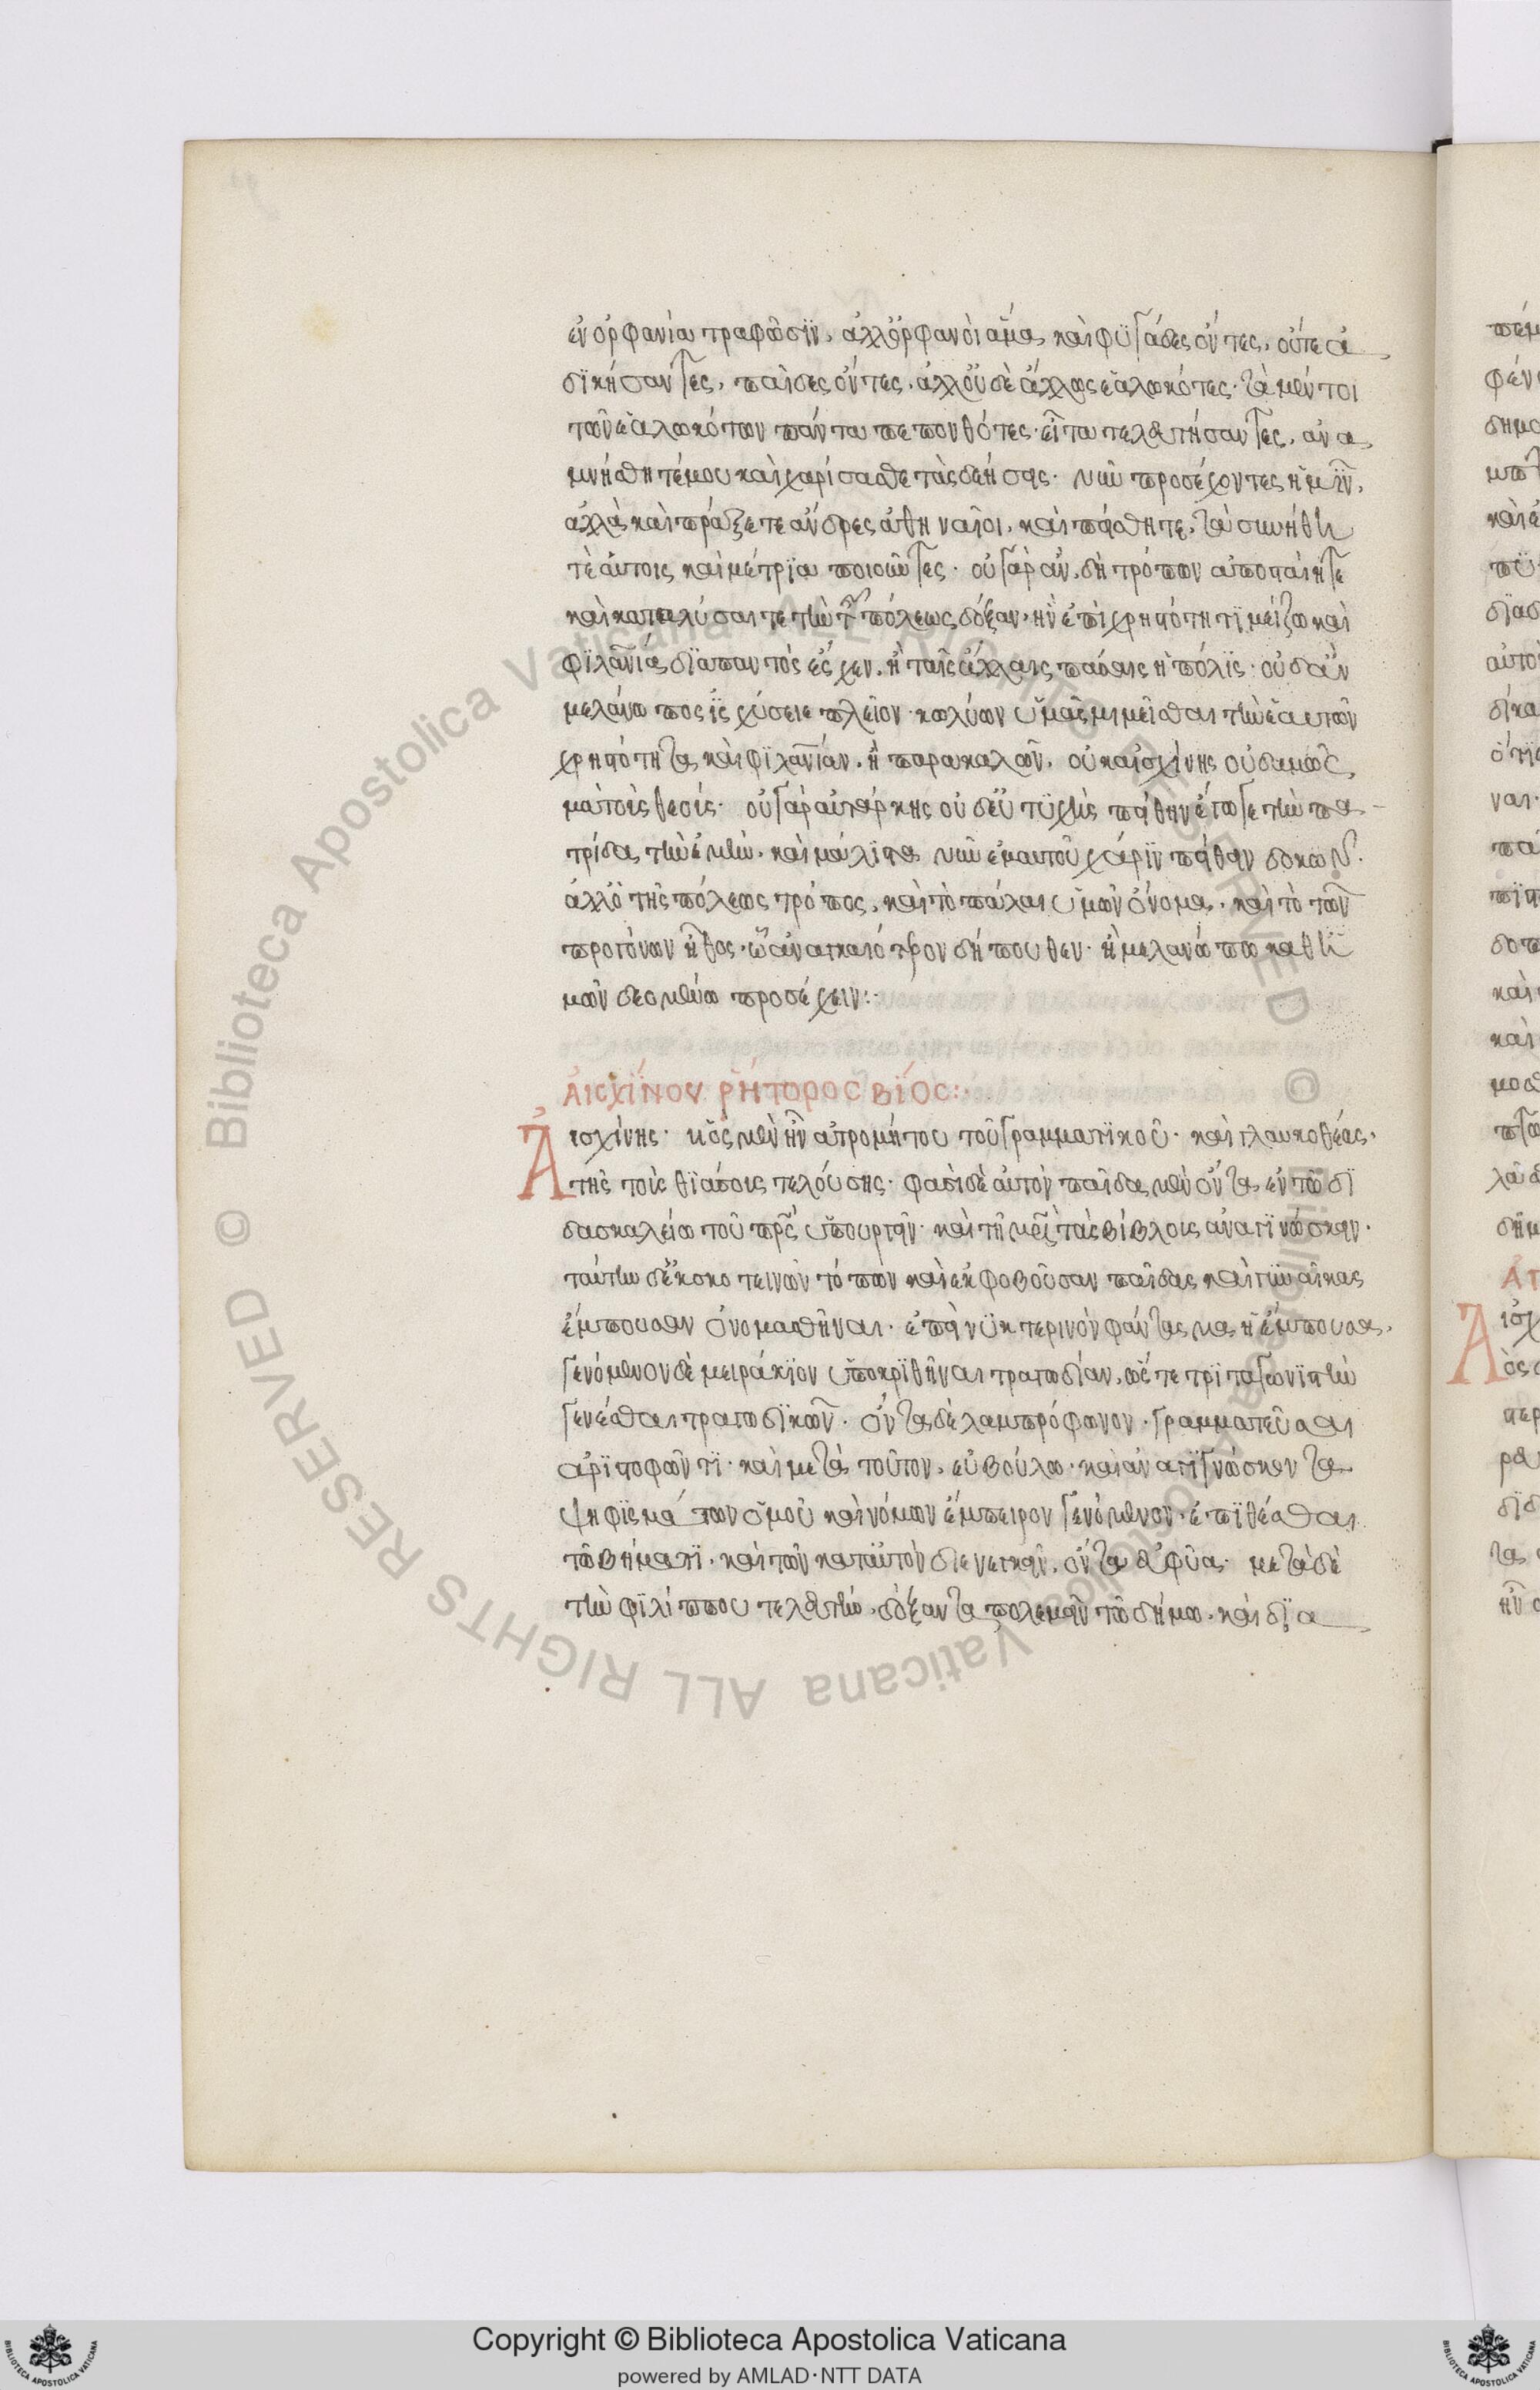 ἐν ὀρφανία τραφῶσϊν, ἀλλ' ὀρφανοὶ ἅμα καὶ φυγάδες ὄντες, οὔτε ἀ
δϊκήσαντες, παῖδες ὄντες, ἀλλ' οὐδὲ ἄλλως ἑαλωκότες· τὰ μέντοι
τῶν ἑαλωκότων πάντα πεπονθότες· εἶτα τελευτήσαντες, ἀνα
μνήσθητέ μου καὶ χαρίσασθε τὰς δεήσεις· νῦν προσέχοντες ἡμῖν,
ἀλλὰ καὶ πράξετε ἄνδρες ἀθηναῖοι, καὶ πείσθητε, τὰ συνήθη
τὲ αὐτοῖς καὶ μέτρϊα ποιοῦντες· οὐ γὰρ ἂν δὴ τρόπον
καὶ καταλῦσαι τε τὴν τῆς πόλεως δόξαν, ἣν ἐπὶ χρηστότητϊ μείζω καὶ
φϊλανίᾳ δϊαπαντὸς ἔσχεν, ἢ ταῖς ἄλλαις πάσαις ἡ πόλϊς· οὐδ' ἂν
μελάνωπος ἰσχύσειε πλεῖον κωλύων ὑμᾶς μιμεῖσθαι τὴν ἑαυτῶν
χρηστότητα καὶ φϊλανίαν, ἢ παρακαλῶν, οὐκ αἰσχίνης οὐδαμῶς
μὰ τοὺς θεούς· οὐ γὰρ αὐτάρκης οὐδ' εὐτυχὴς πείθειν ἔγωγε τὴν πα
τρίδα τὴν ἐμὴν, καὶ μάλϊστα νῦν ἐμαυτοῦ χάρϊν πείθειν δοκῶν·
ἀλλ' ὁ τῆς πόλεως τρόπος, καὶ τὸ πάλαι ὑμῶν ὄνομα, καὶ τὸ τῶν
προγόνων ἦθος· ὧ ἀναγκαιότερον δήπουθεν· ἢ μελανώπω καθ' ἡ
μῶν δεομένω προσέχειν:
ΑἸΣΧΊΝΟΥ ῬΉΤΟΡΟΣ ΒΊΟΣ:
Αἰσχίνης· υἱὸς μὲν ἦν ἀτρομήτου τοῦ γραμματϊκοῦ· καὶ γλαυκοθέας,
τῆς τοὺς θϊάσους τελούσης· φασὶ δὲ αὐτὸν παῖδα μὲν ὄντα, ἐν τῶ δϊ
δασκαλείω τοῦ πρς ὑπουργεῖν· καὶ τῆ μρὶ τὰς βίβλοις ἀναγϊνώσκειν·
ταύτην δ' ἐκ σκοτεινῶν τόπων καὶ ἐκφοβοῦσαν παῖδας καὶ γυναῖκας
ἔμπουσαν ὀνομασθῆναι· ἐπεὶ νϋκτερινὸν φάντασμα ἡ ἔμπουσα,
γενόμενον δὲ μειράκϊον ὑποκρϊθῆναι τραγωδίαν, ὥστε τρϊταγωνϊστὴν
γενέσθαι τραγωδϊκῶν· ὄντα δὲ λαμπρόφωνον, γραμματεῦσαι
ἀρϊστοφῶντϊ· καὶ μετὰ τοῦτον, εὐβούλω· καὶ ἀναγϊγνώσκοντα
ψηφϊσμάτων ὁμοῦ καὶ νόμων ἔμπειρον γενόμενον· ἐπϊθέσθαι
τῶ βήματϊ· καὶ τῶν κατ' αὐτὸν διενεγκεῖν, ὄντα εὐφυᾶ· μετὰ δὲ
τὴν φϊλίππου τελευτὴν, δόξαντα πολεμεῖν τῶ δήμω, καὶ δϊα
Copyright © Biblioteca Apostolica Vaticana
powered by AMLAD·NTT DATA
© Biblioteca Apostolica Vaticana ALL RIGHTS RESERVED